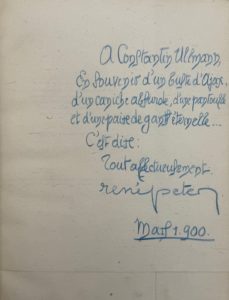 A Constantin Ullmann,
En souvenir d'un buste d'Ajax,
d'un caniche absurde, d'une pantoufle
et d'une paire de gants éternelle...
C'est dité:
Tout affectueusement.
renépeter
Mars 1.900.